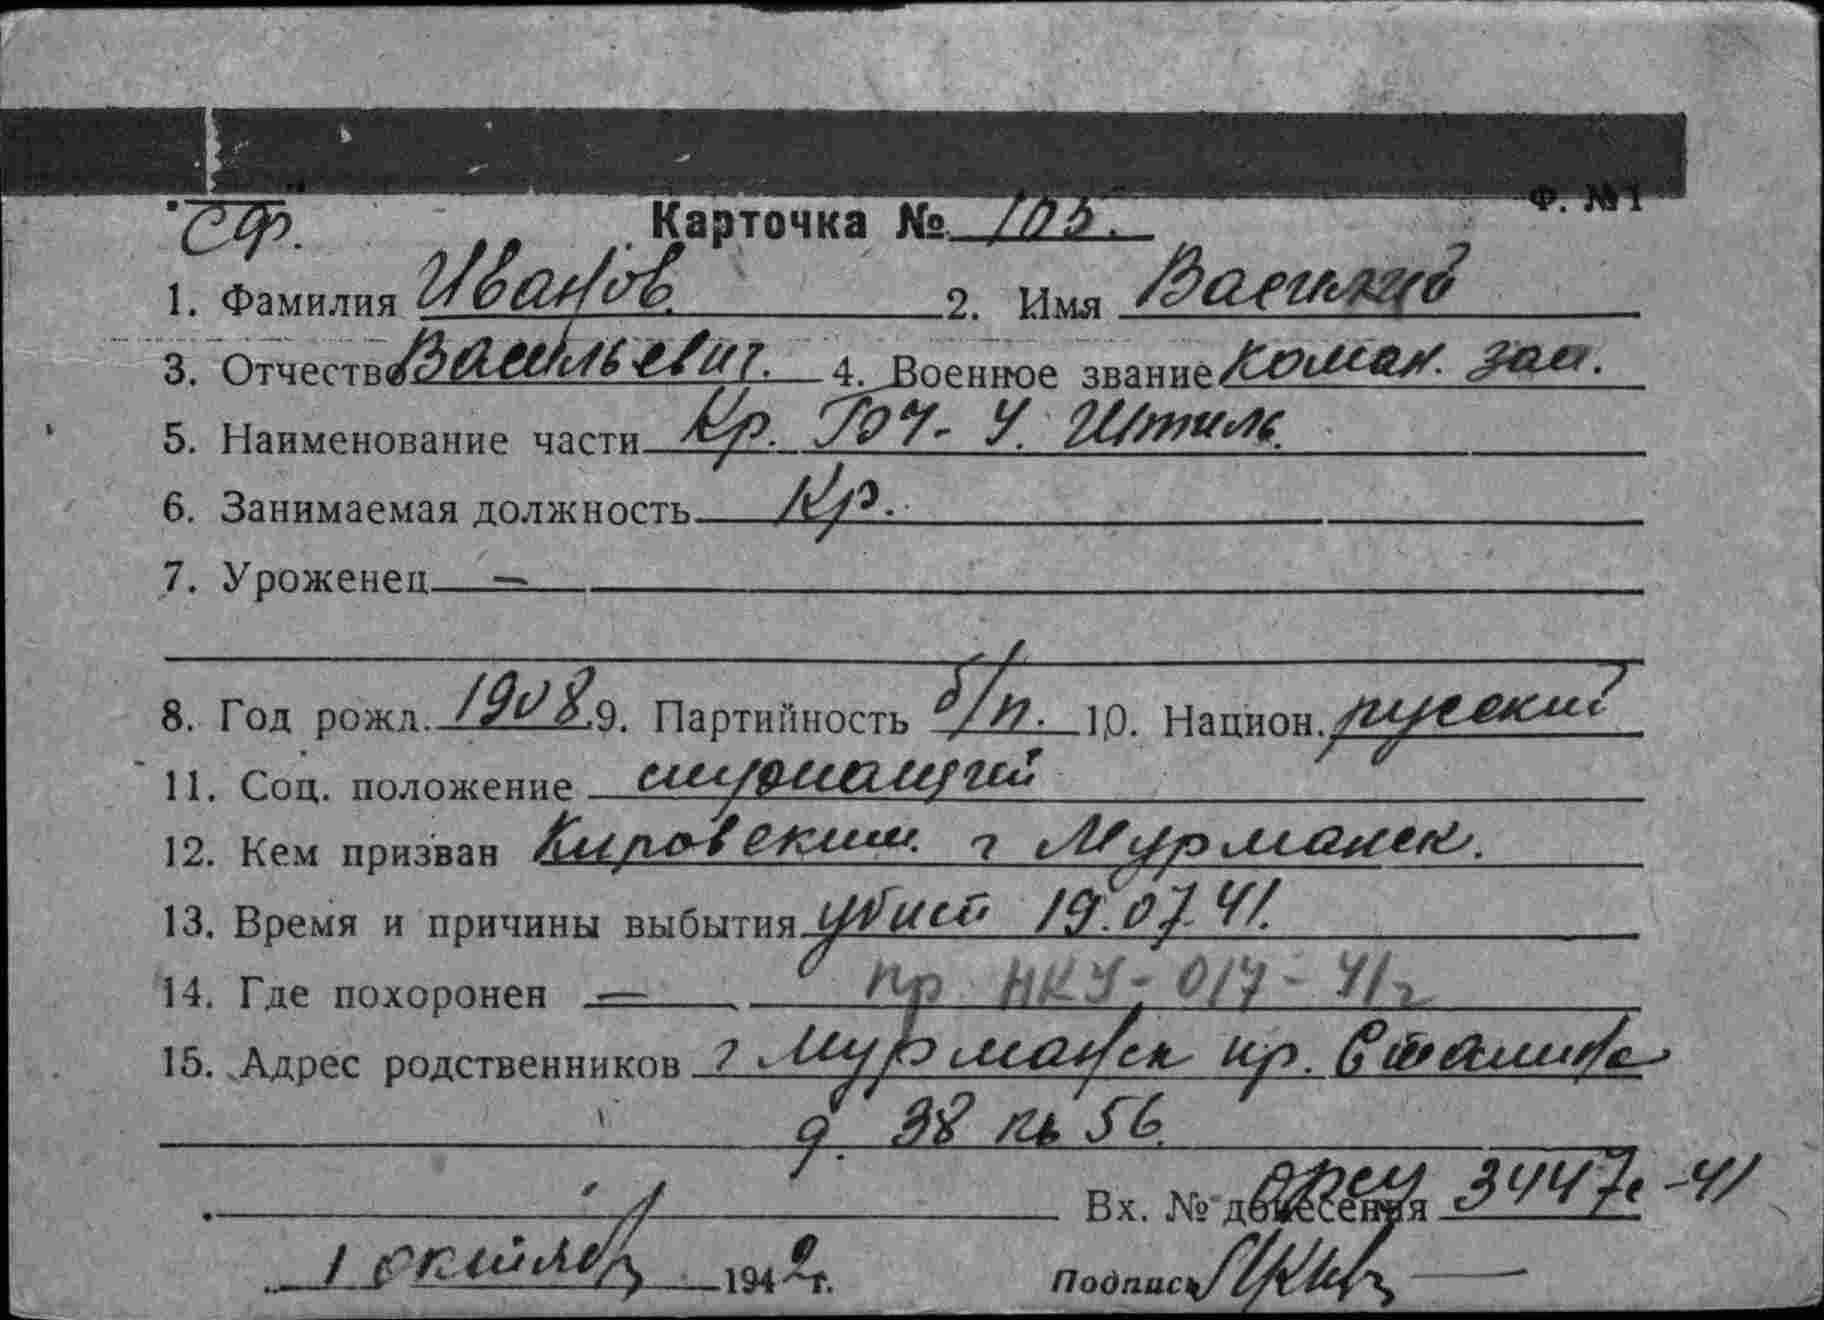 Ф. №1
СФ. Карточка № 105.
1. Фамилия Иванов 2. Имя Василий
3. Отчество Васильевич. 4. Военное звание Коман. зап.
5. Наименование части Кр. ТЩ-У. Штиль.
6. Занимаемая должность Кр.
7. Уроженец —
8. Год рожд. 1908 9. Партийность б/п. 10. Национ. русский
11. Соц. положение служащий
12. Кем призван Кировским г Мурманск.
13. Время и причины выбытия убит 19.07.41.
14. Где похоронен — пр НКУ-017-41г
15. Адрес родственников г Мурманск пр. Сталина
д. 38 кв 56.
Вх. № донесения 3447с -41
1 октября 1942г. Подпись